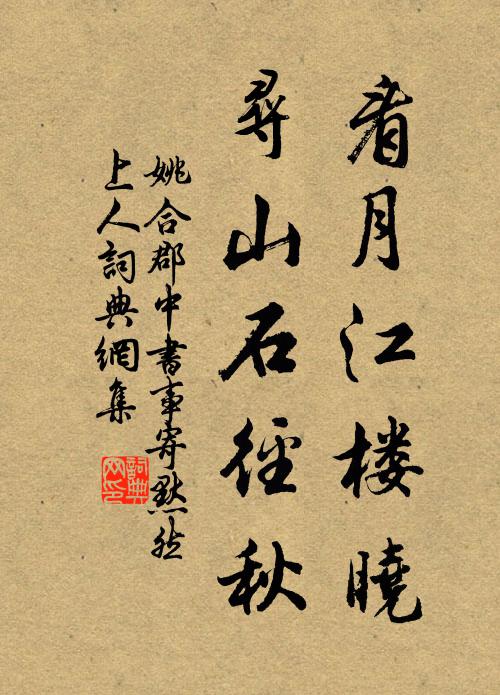 看月江楼曉
尋山石徑秋
姚合郡中書事寄默然
上人詞典網集
詞典网印